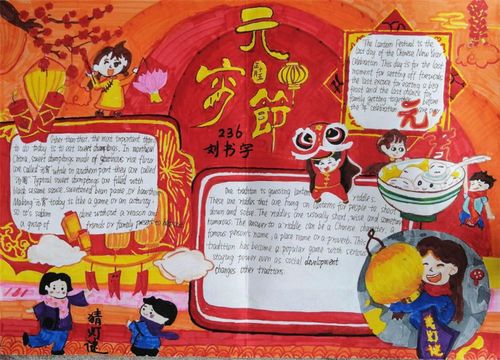 元宵節
236
刘书宇
The Lantern Festival is the
last day of the Chinese New Year
Celebration. This day is for the last
moment for setting off fireworks,
the last excuse for eating a big
feast and the last chance for
family getting together before
the 年 celebration
元
Other than that, the most important thing
to do today is to eat sweet dumplings. In northern
China, sweet dumplings made of glutinous rice flour
are called 元宵 while in southern part they are called
汤圆. Typical sweet dumplings are filled with
black sesame sauce, sweetened bean paste or hawthorn.
Making 元宵 today is like a game or an activity.
So it's seldom done without a reason and
a group of friends or family present to
One tradition is guessing lantern riddles.
These are riddles that are hung on lanterns for people to
down and solve. The riddles are usually short, wise and
humorous. The answer to a riddle can be a Chinese character, a
famous person's name, a place name or a proverb. This
tradition has become a popular game with serious
staying power even as social development
changes other traditions
猜灯谜